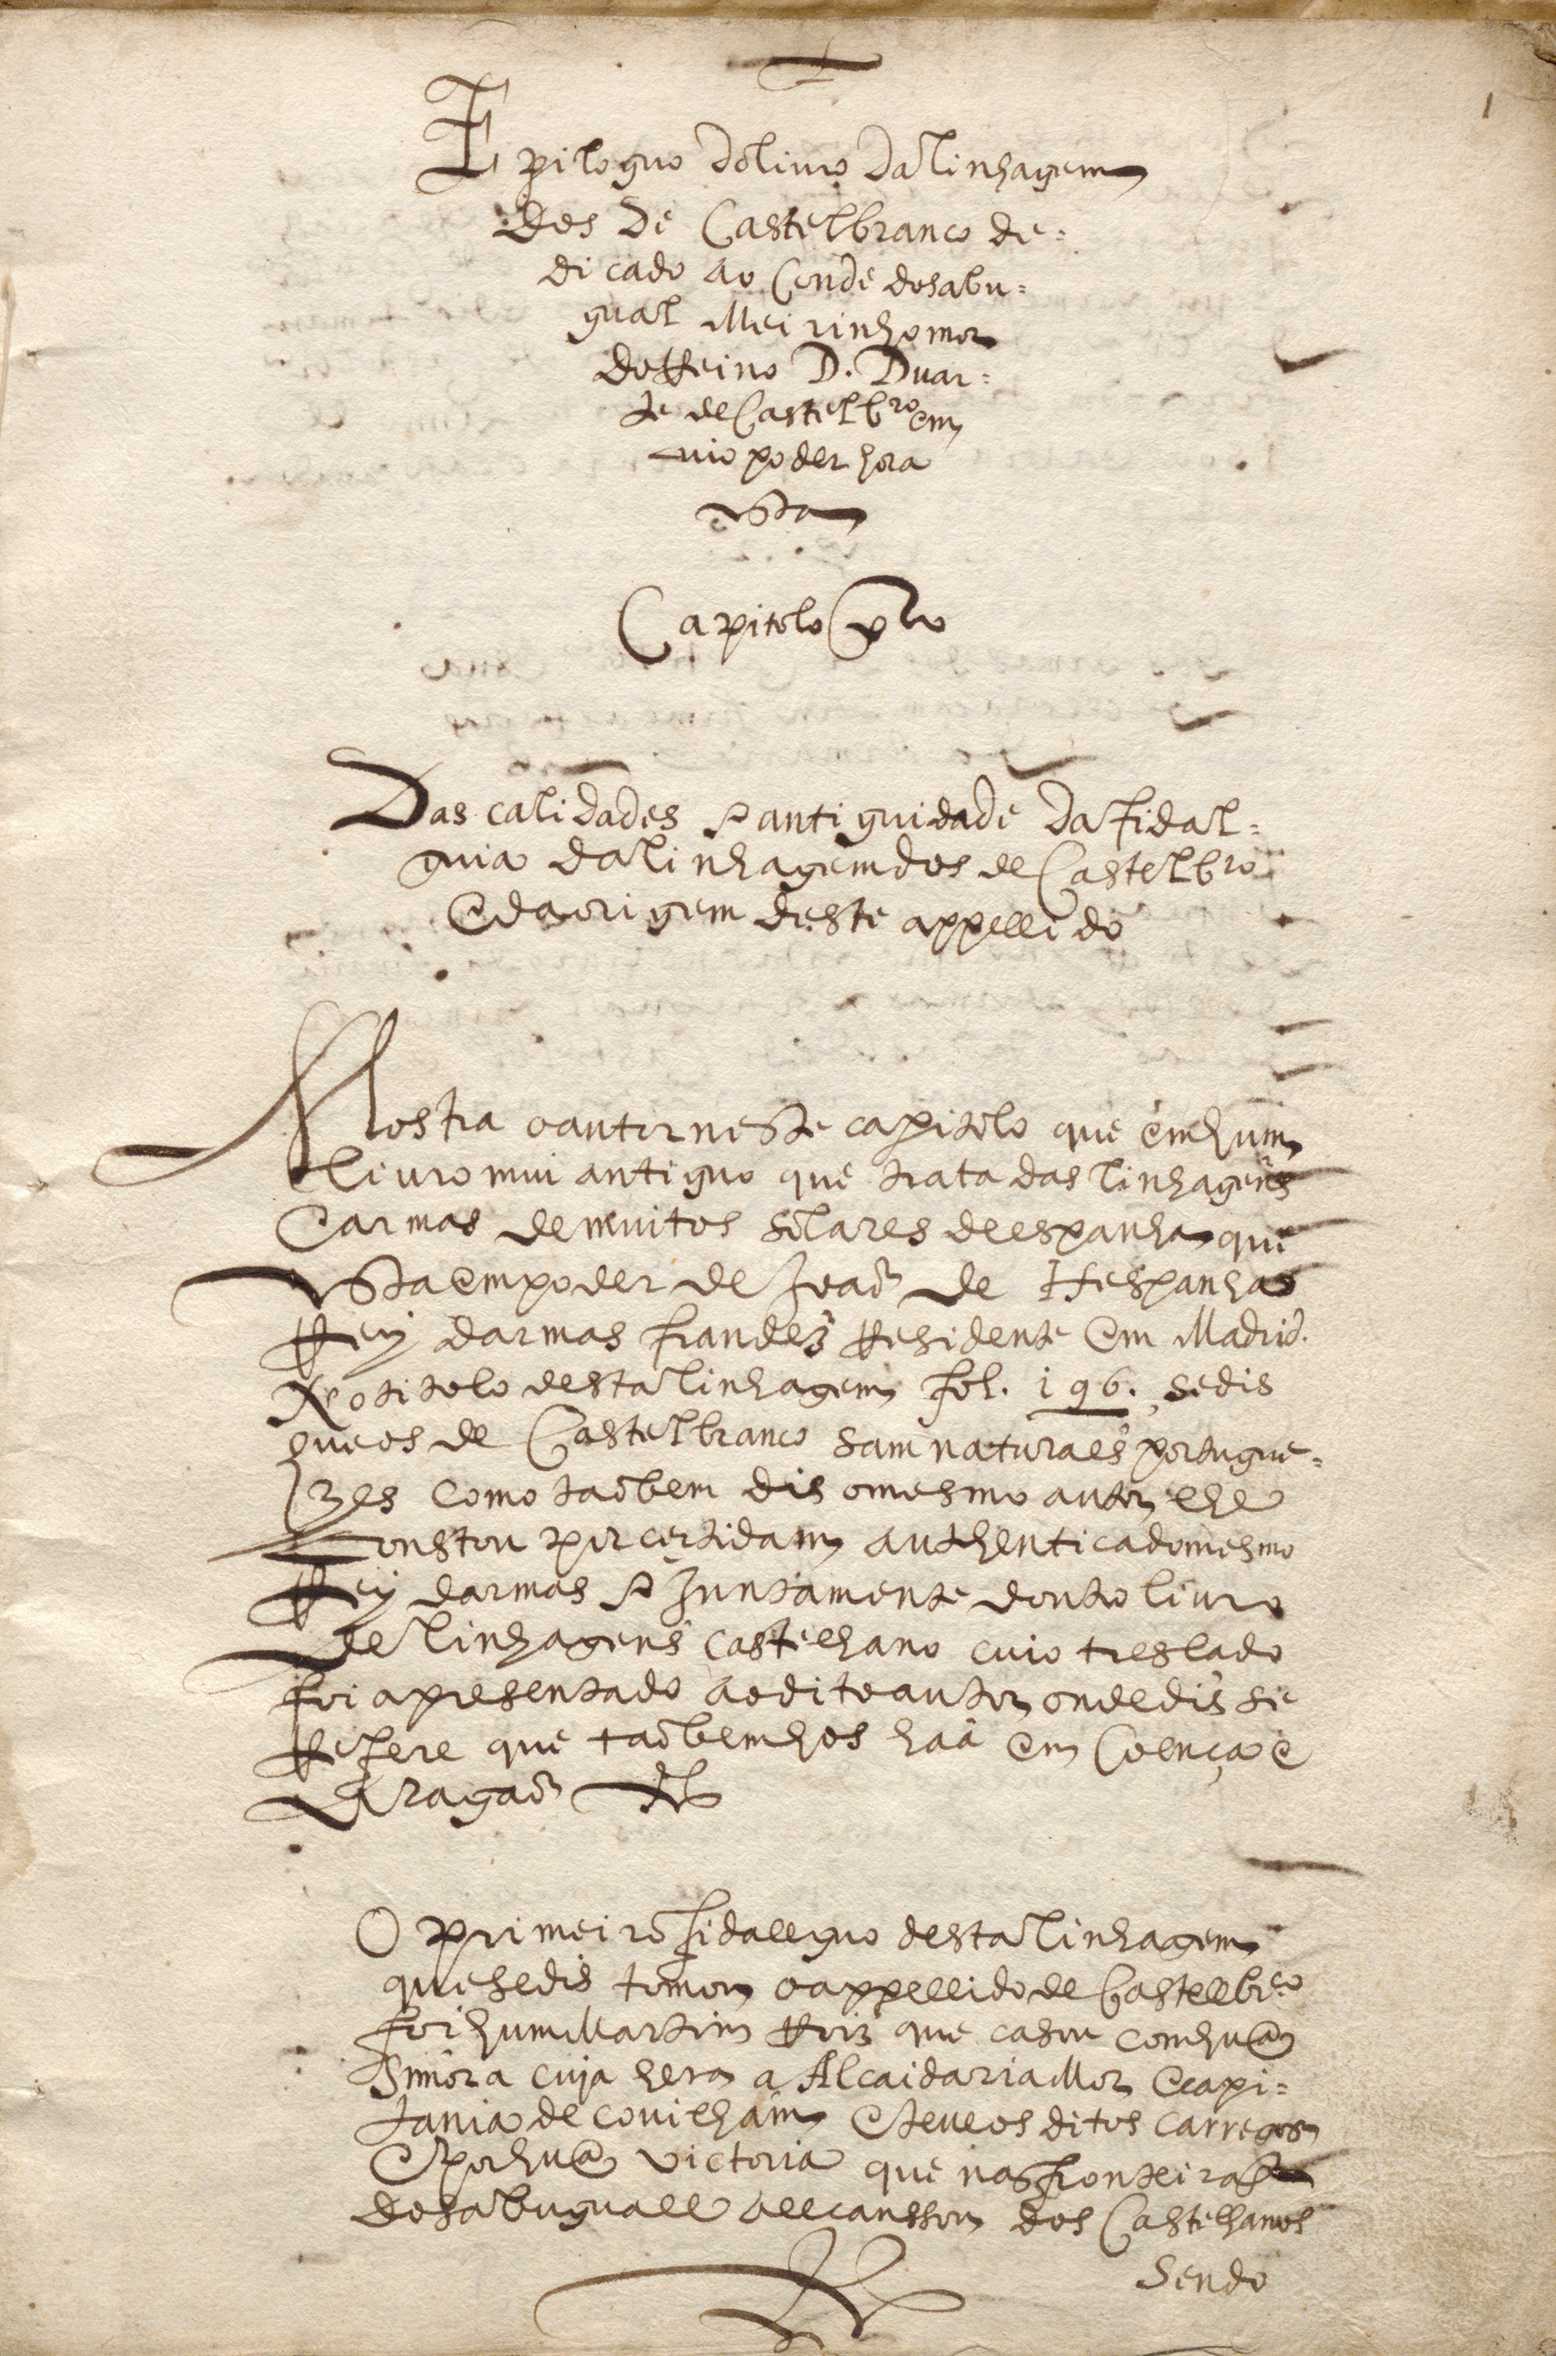 1
Epiloguo do livro da linhagem
dos de Castelbranco de=
dicado ao Conde do sabu=
gual Meirinho mor
do Reino D. Duar=
te de Castelbro em
cuio poder hora
esta
Capitolo pro
Das calidades e antiguidade da fidal=
guia da linhagem dos de Castelbro
e da origem deste appellido
Mostra o autor neste capitolo que em hum
livro mui antiguo que trata das linhagens
e armas de muitos solares de espanha que
esta em poder de Joaõ de Hespanha
Rey darmas frandes Residente em Madrid.
No titolo desta linhagem fol. 196. se dis
que os de Castelbranco sam naturaes portugue=
zes como taõbem dis o mesmo autor e lhe
constou por certidam authentica do mesmo
Rey darmas e Juntamente doutro livro
de linhagens castelhano cuio treslado
foi apresentado ao dito autor onde dis se
Refere que taõbem hos haa em Coença e
Aragaõ
O primeiro fidallguo desta linhagem
que se dis tomou o appellido de Castellbrco
foi hum Martim Roiz que casou com hua
Snnora cuja hera a Alcaidaria Mor e capi=
tania de Covilham e teve os ditos carregos
e por hua victoria que nas fronteiras
do sabuguall allcanssou dos Castelhanos
Sendo